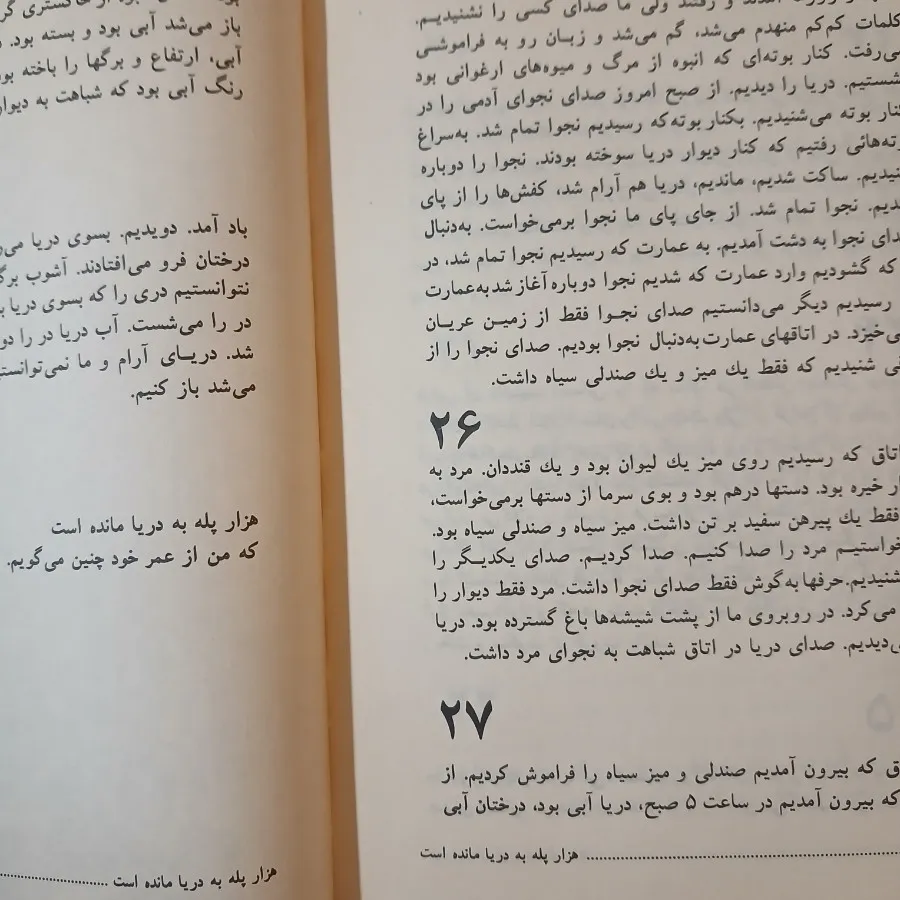 آمدند و رفتند ولی ما صدای کسی را نشنیدیم.
کلمات کم‌کم منهدم می‌شد، گم می‌شد و زبان رو به فراموشی
می‌رفت. کنار بوته‌ای که انبوه از مرگ و میوه‌های ارغوانی بود
نشستیم. دریا را دیدیم. از صبح امروز صدای نجوای آدمی را در
کنار بوته می‌شنیدیم. بکنار بوته‌که رسیدیم نجوا تمام شد. به‌سراغ
بوته‌هائی رفتیم که کنار دیوار دریا سوخته بودند. نجوا را دوباره
شنیدیم. ساکت شدیم، ماندیم، دریا هم آرام شد، کفش‌ها را از پای
نجوا تمام شد. از جای پای ما نجوا برمی‌خواست. به‌دنبال
صدای نجوا به دشت آمدیم. به عمارت که رسیدیم نجوا تمام شد، در
که گشودیم وارد عمارت که شدیم نجوا دوباره آغاز شد به‌عمارت
رسیدیم دیگر می‌دانستیم صدای نجوا فقط از زمین عریان
می‌خیزد. در اتاقهای عمارت به‌دنبال نجوا بودیم. صدای نجوا را از
شنیدیم که فقط یك میز و یك صندلی سیاه داشت.
۲۶
اتاق که رسیدیم روی میز یك لیوان بود و یك قنددان. مرد به
خیره بود. دستها درهم بود و بوی سرما از دستها برمی‌خواست،
فقط یك پیرهن سفید بر تن داشت. میز سیاه و صندلی سیاه بود.
خواستیم مرد را صدا کنیم. صدا کردیم. صدای یکدیگر را
نشنیدیم.حرفها به‌گوش فقط صدای نجوا داشت. مرد فقط دیوار را
می‌کرد. در روبروی ما از پشت شیشه‌ها باغ گسترده بود. دریا
می‌دیدیم. صدای دریا در اتاق شباهت به نجوای مرد داشت.
۲۷
که بیرون آمدیم صندلی و میز سیاه را فراموش کردیم. از
که بیرون آمدیم در ساعت ۵ صبح، دریا آبی بود، درختان آبی
هزار پله به دریا مانده است
باز می‌شد آبی بود و بسته بود.
آبی، ارتفاع و برگها را باخته
رنگ آبی بود که شباهت به
باد آمد. دویدیم. بسوی دریا
درختان فرو می‌افتادند. آشوب
نتوانستیم دری را که بسوی دریا
در را می‌شست. آب دریا در را
شد. دریای آرام و ما
می‌شد باز کنیم.
هزار پله به دریا مانده است
که من از عمر خود چنین می‌گویم.
هزار پله به دریا مانده است